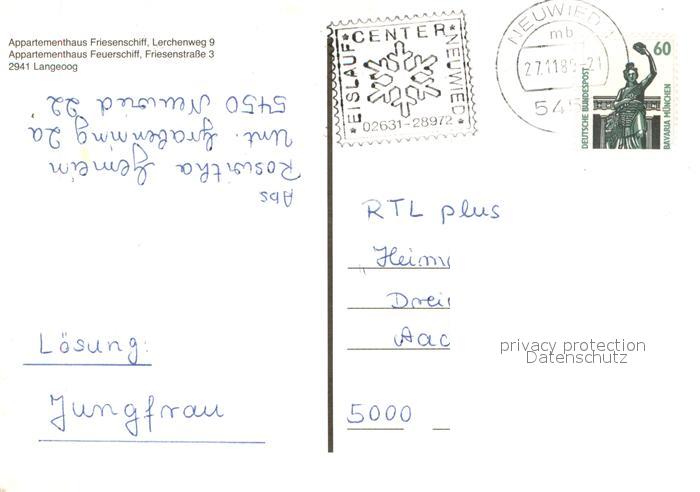 Appartementhaus Friesenschiff, Lerchenweg 9
Appartementhaus Feuerschiff, Friesenstraße 3
2941 Langeoog
Abs
Roswitha Gemein
Unt. Grabenweg 2a
5450 Neuwied 22
Lösung:
Jungfrau
EISLAUF * CENTER * NEUWIED
02631-28972
NEUWIED 1
mb
27.11.89-21
545
60
DEUTSCHE BUNDESPOST
BAVARIA MÜNCHEN
RTL plus
"Heim
Drei
Aac
5000
privacy protection
Datenschutz